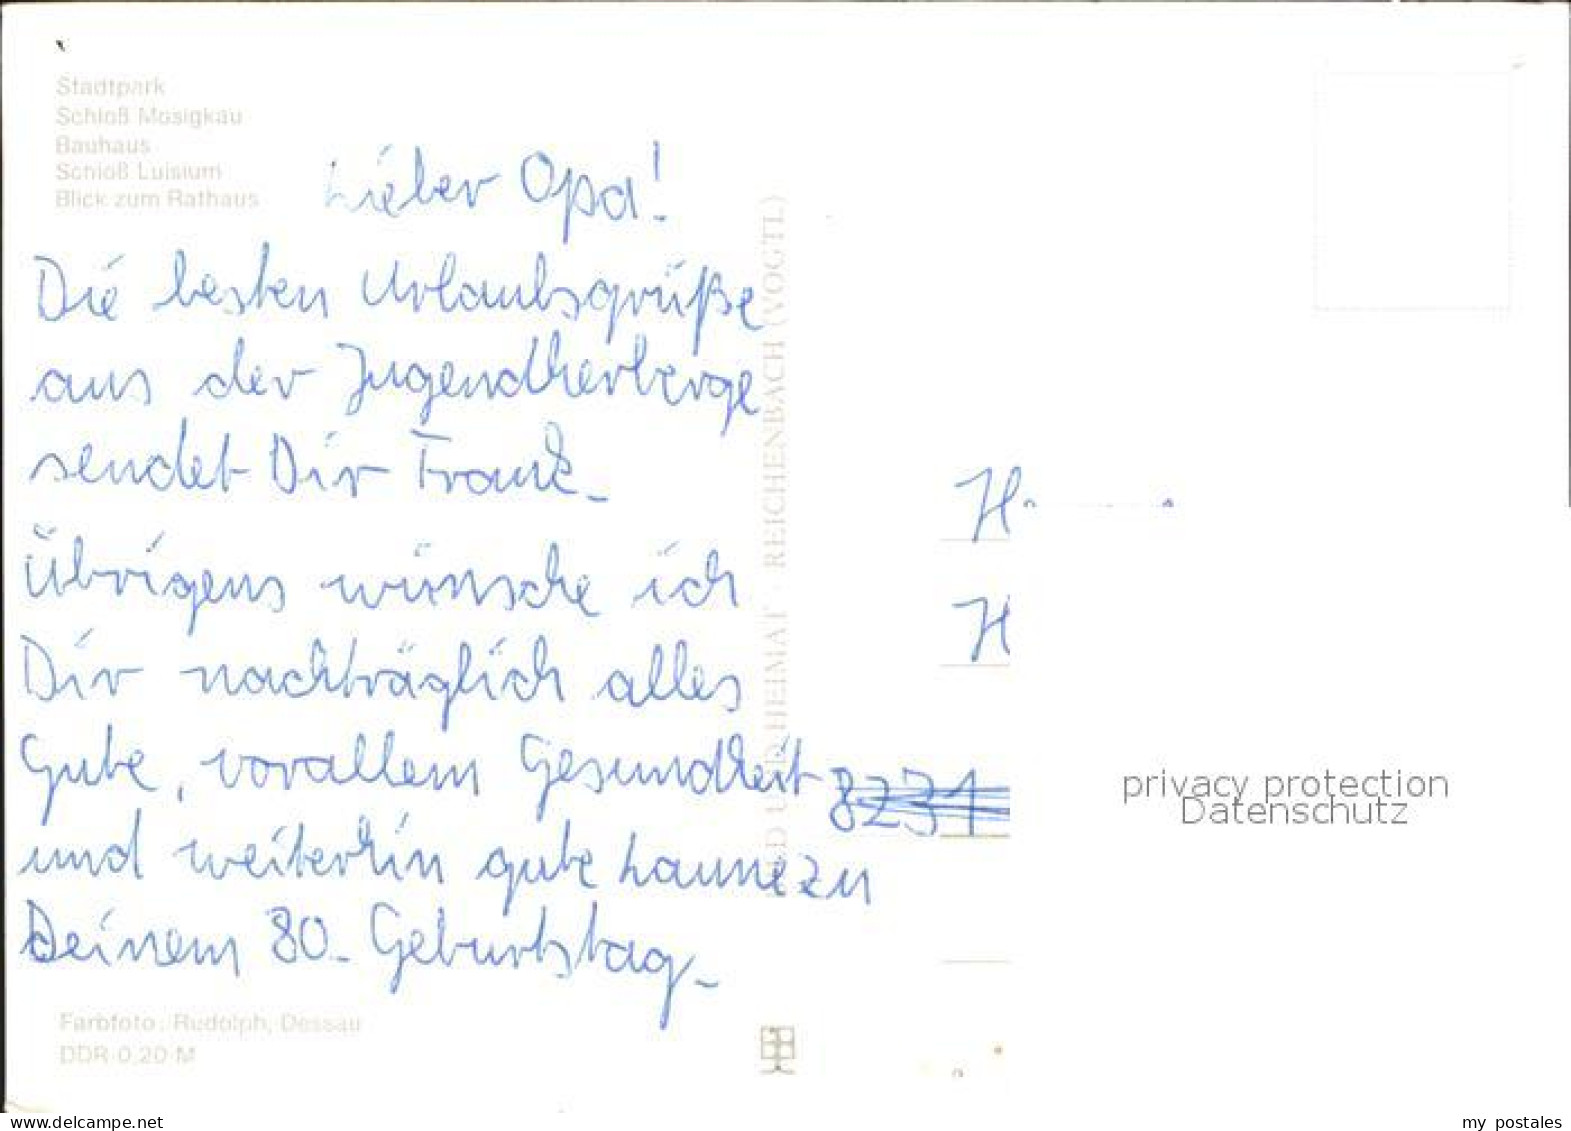 Stadtpark
Schloß Mosigkau
Bauhaus
Schloß Luisium
Blick zum Rathaus
Lieber Opa!
Die besten Urlaubsgrüße
aus der Jugendherberge
sendet Dir Frank.
Übrigens wünsche ich
Dir nachträglich alles
Gute, vorallem Gesundheit
und weiterhin gute Laune zu
Deinem 80. Geburtstag.
Farbfoto: Rudolph, Dessau
DDR 0,20 M
BILD UND HEIMAT · REICHENBACH (VOGTL)
H
H
8231
privacy protection
Datenschutz
www.delcampe.net
my_postales